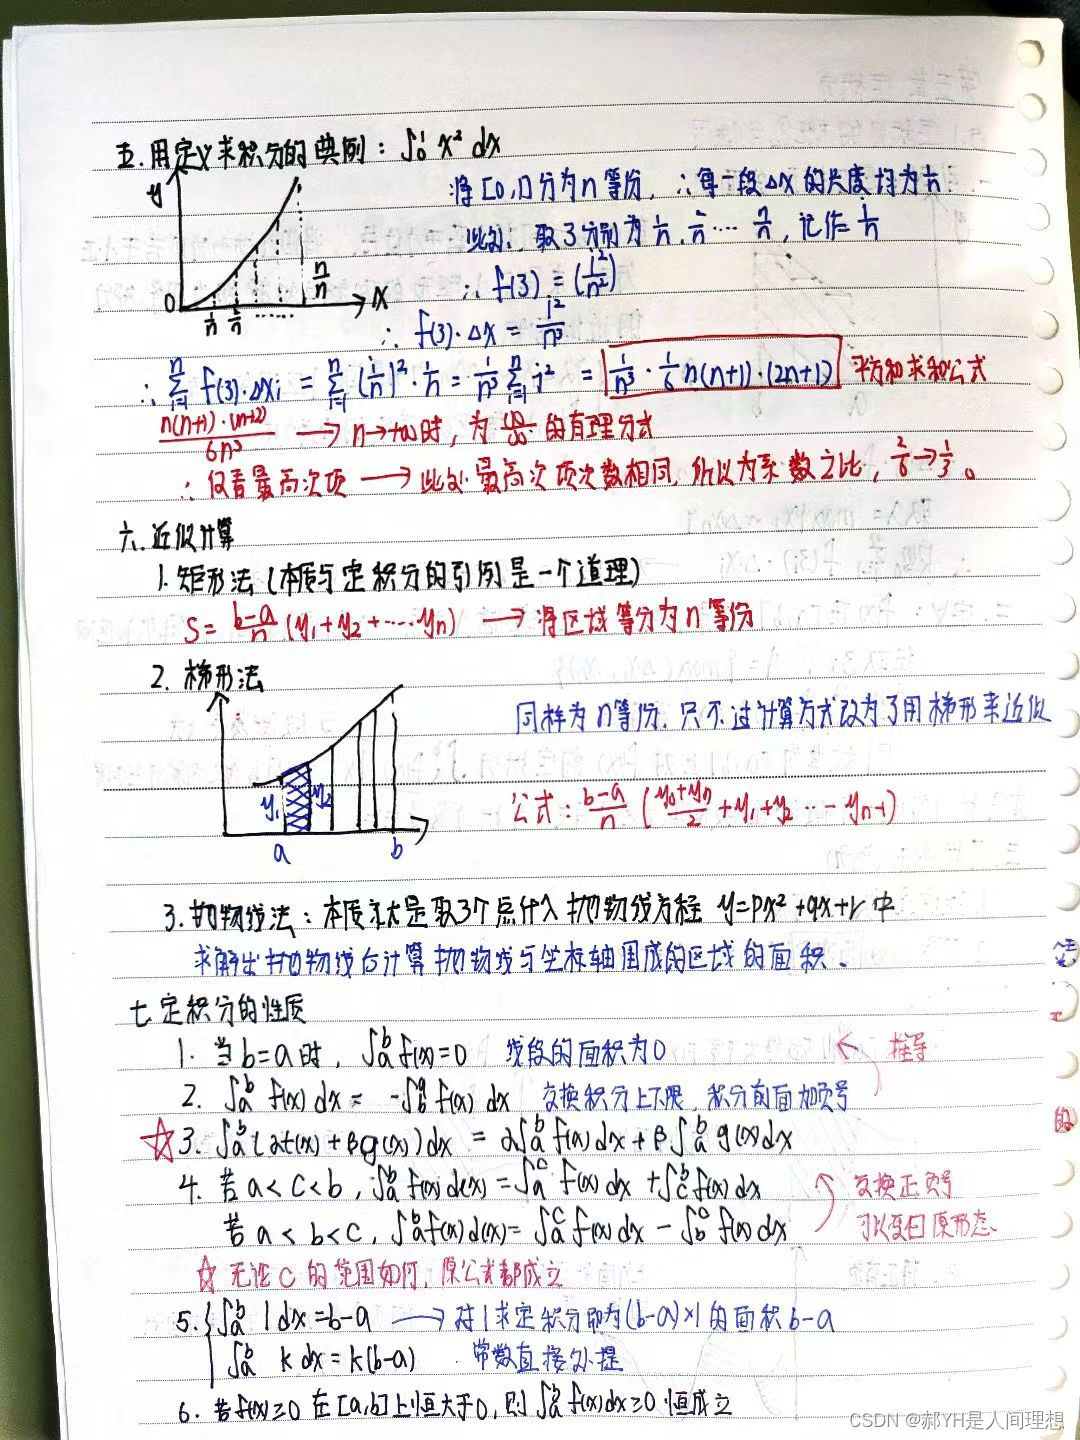 五.用定义求积分的典例: ∫₀¹ x² dx
y
将[0,1]分为n等份, ∴每一段Δx的长度均为1/n
此处, 取3分别为 1/n, 2/n … n/n, 记作 i/n
∴ f(3) = (i²/n²)
∴ f(3)·Δx = i²/n³
0 1/n 2/n …… n/n x
∴ Σⁿᵢ₌₁ f(3)·Δxᵢ = Σⁿᵢ₌₁ (i/n)²·1/n = 1/n³ Σⁿᵢ₌₁ i² = 1/n³ · 1/6 n(n+1)·(2n+1) 平方和求和公式
→ n→+∞时, 为 ∞/∞ 的有理分式
∴ 仅看最高次项 → 此处最高次项次数相同, 所以为系数之比, 2/6→1/3。
六.近似计算
1.矩形法(本质与定积分的引例是一个道理)
S= b-a/n (y₁+y₂+…yₙ) → 将区域等分为n等份
2. 梯形法
同样为n等份, 只不过计算方式改为了用梯形来近似
公式: b-a/n (y₀+yₙ/2 +y₁+y₂ … yₙ₋₁)
y₁ y₂
a b
3.抛物线法: 本质就是取3个点代入抛物线方程 y=px²+qx+r 中
求解出抛物线后计算抛物线与坐标轴围成的区域的面积.
七.定积分的性质
1. 当b=a时, ∫ₐᵇ f(x)=0 线段的面积为0 推导
2. ∫ₐᵇ f(x) dx = -∫ᵦᵃ f(x) dx 交换积分上下限, 积分前面加负号
☆3. ∫ₐᵇ(αf(x)+βg(x))dx = α∫ₐᵇ f(x)dx+β∫ₐᵇ g(x)dx
4. 若a<c<b, ∫ₐᵇ f(x)d(x)=∫ₐᶜ f(x)dx +∫꜀ᵇ f(x)dx 交换正负号
若a<b<c, ∫ₐᵇ f(x)d(x)=∫ₐᶜ f(x)dx - ∫ᵦᶜ f(x)dx 可以变回原形态
☆ 无论c的范围如何, 原公式都成立
5. { ∫ₐᵇ 1dx=b-a → 对1求定积分即为(b-a)×1的面积b-a
∫ₐᵇ kdx=k(b-a) 常数直接外提
6. 若f(x)≥0 在[a,b]上恒大于0, 则∫ₐᵇ f(x)dx≥0 恒成立
的
CSDN @郝YH是人间理想